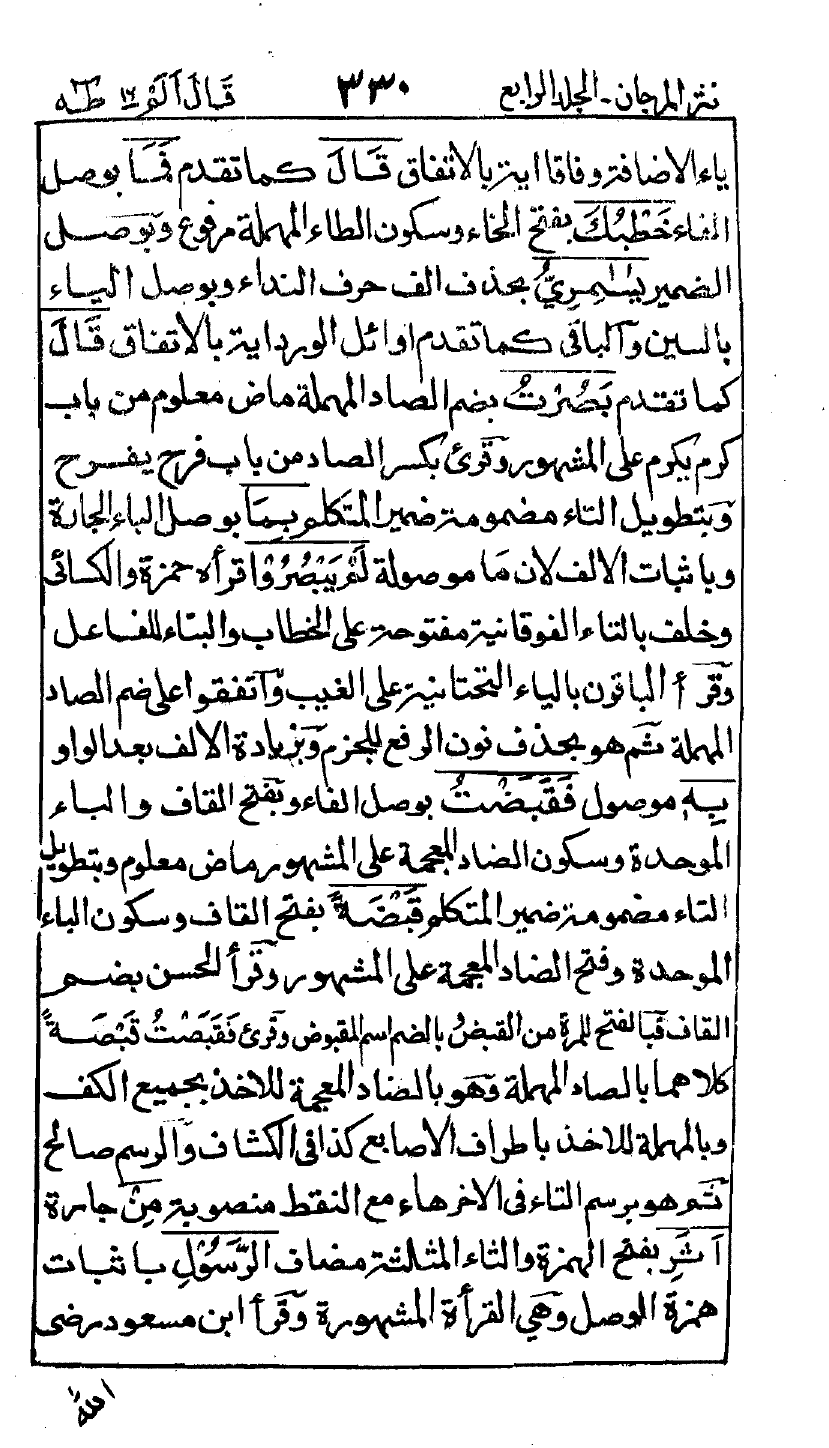 نثر المرجان ـ المجلد الرابع ٣٣٠ قَالَ اَلَمْ ١٦ طٰهٰ
ياء الاضافة وفاقا اية بالاتفاق قَالَ كما تقدم فَمَا بوصل
الفاء خَطْبُكَ بفتح الخاء وسكون الطاء المهملة مرفوع وبوصل
الضمير يٰسَٰمِرِيُّ بحذف الف حرف النداء وبوصل الياء
بالسين والباقى كما تقدم اوائل الورد اية بالاتفاق قَالَ
كما تقدم بَصُرْتُ بضم الصاد المهملة ماض معلوم من باب
كرم يكرم على المشهور وقرئ بكسر الصاد من باب فرح يفرح
وبتطويل التاء مضمومة ضمير المتكلم بِمَا بوصل الباء الجارة
وباثبات الالف لان ما موصولة لَمْ يَبْصُرُوْا قرأه حمزة والكسائى
وخلف بالتاء الفوقانية مفتوحة على الخطاب والبناء للفاعل
وقرأ الباقون بالياء التحتانية على الغيب واتفقوا على ضم الصاد
المهملة ثم هو بحذف نون الرفع للجزم وبزيادة الالف بعد الواو
بِهٖ موصول فَقَبَضْتُ بوصل الفاء وبفتح القاف والباء
الموحدة وسكون الضاد المعجمة على المشهور ماض معلوم وبتطويل
التاء مضمومة ضمير المتكلم قَبْضَةً بفتح القاف وسكون الباء
الموحدة وفتح الضاد المعجمة على المشهور وقرأ الحسن بضم
القاف فبالفتح للمرة من القبض بالضم اسم المقبوض وقرئ فَقَبَصْتُ قَبْصَةً
كلاهما بالصاد المهملة وهو بالضاد المعجمة للاخذ بجميع الكف
وبالمهملة للاخذ باطراف الاصابع كذا فى الكشاف والرسم صالح
ثم هو برسم التاء فى الاخر هاء مع النقط منصوبة مِنْ جارة
اَثَرِ بفتح الهمزة والثاء المثلثة مضاف الرَّسُوْلِ باثبات
همزة الوصل وهي القرأة المشهورة وقرأ ابن مسعود رضى
الله